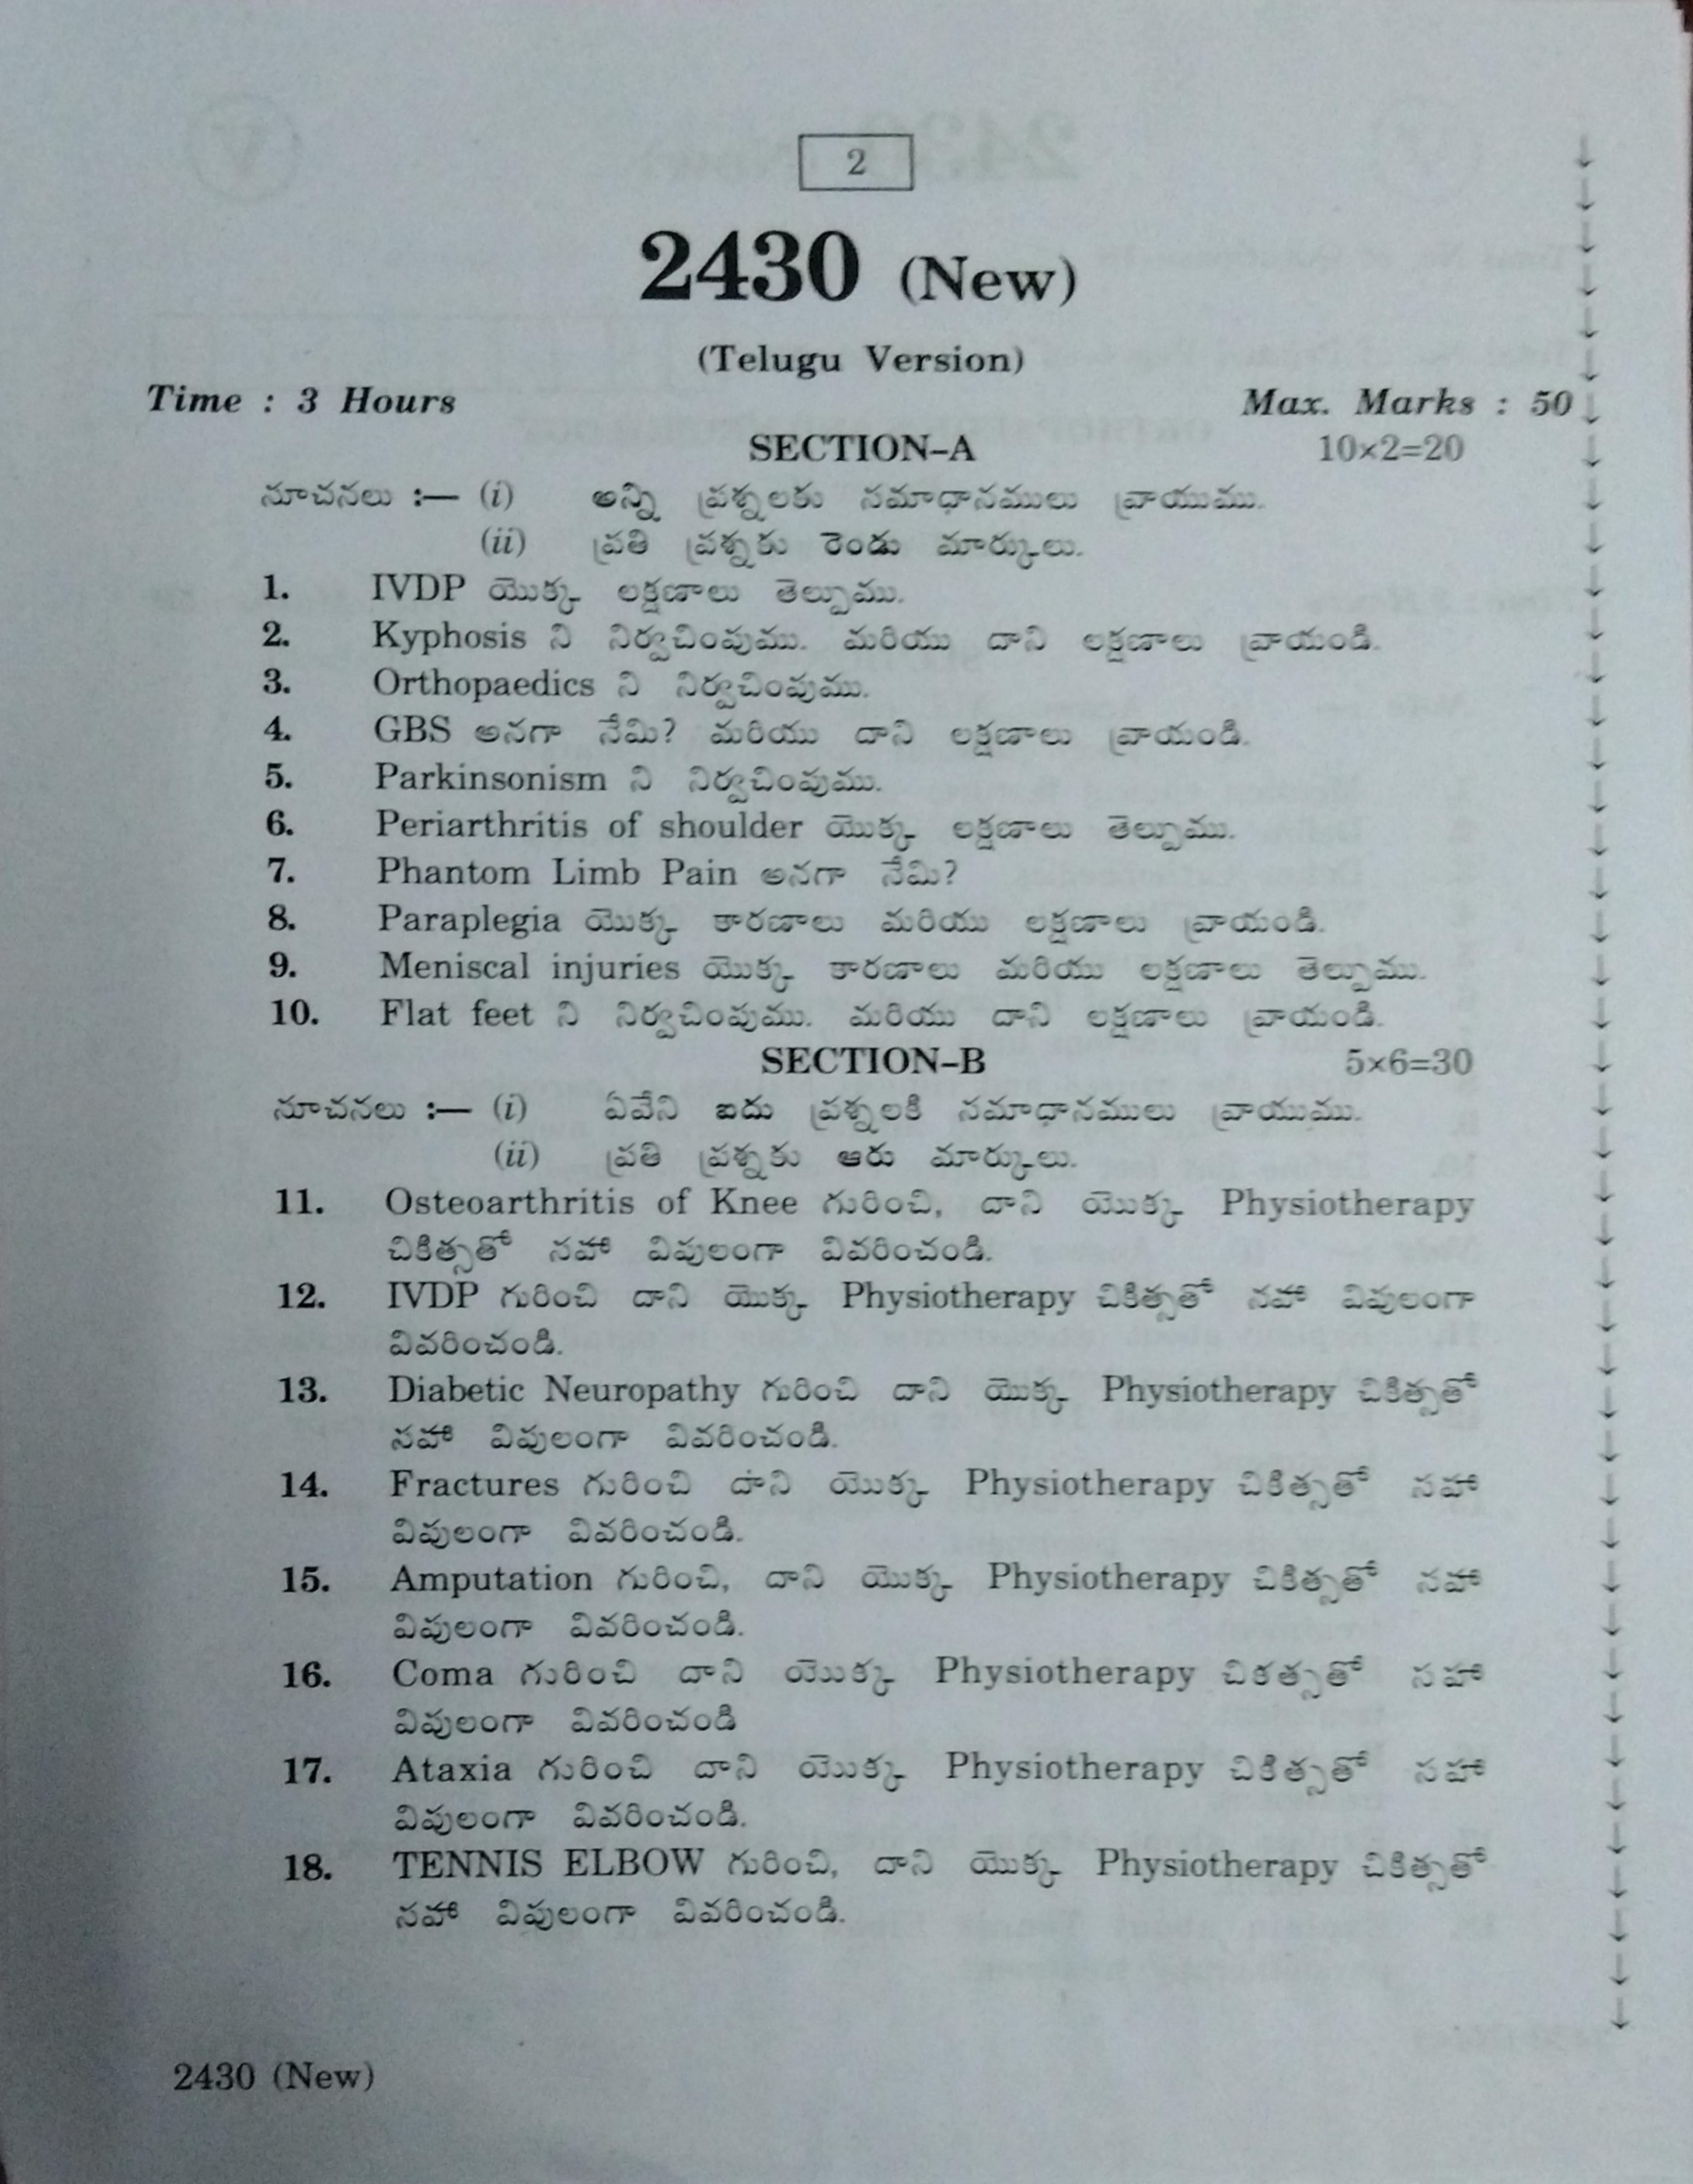 2
2430 (New)
(Telugu Version)
Time : 3 Hours Max. Marks : 50
SECTION–A 10×2=20
సూచనలు :— (i) అన్ని ప్రశ్నలకు సమాధానములు వ్రాయుము.
(ii) ప్రతి ప్రశ్నకు రెండు మార్కులు.
1. IVDP యొక్క లక్షణాలు తెల్పుము.
2. Kyphosis ని నిర్వచింపుము. మరియు దాని లక్షణాలు వ్రాయండి.
3. Orthopaedics ని నిర్వచింపుము.
4. GBS అనగా నేమి? మరియు దాని లక్షణాలు వ్రాయండి.
5. Parkinsonism ని నిర్వచింపుము.
6. Periarthritis of shoulder యొక్క లక్షణాలు తెల్పుము.
7. Phantom Limb Pain అనగా నేమి?
8. Paraplegia యొక్క కారణాలు మరియు లక్షణాలు వ్రాయండి.
9. Meniscal injuries యొక్క కారణాలు మరియు లక్షణాలు తెల్పుము.
10. Flat feet ని నిర్వచింపుము. మరియు దాని లక్షణాలు వ్రాయండి.
SECTION–B 5×6=30
సూచనలు :— (i) ఏవేని ఐదు ప్రశ్నలకి సమాధానములు వ్రాయుము.
(ii) ప్రతి ప్రశ్నకు ఆరు మార్కులు.
11. Osteoarthritis of Knee గురించి, దాని యొక్క Physiotherapy
చికిత్సతో సహా విపులంగా వివరించండి.
12. IVDP గురించి దాని యొక్క Physiotherapy చికిత్సతో సహా విపులంగా
వివరించండి.
13. Diabetic Neuropathy గురించి దాని యొక్క Physiotherapy చికిత్సతో
సహా విపులంగా వివరించండి.
14. Fractures గురించి దాని యొక్క Physiotherapy చికిత్సతో సహా
విపులంగా వివరించండి.
15. Amputation గురించి, దాని యొక్క Physiotherapy చికిత్సతో సహా
విపులంగా వివరించండి.
16. Coma గురించి దాని యొక్క Physiotherapy చికత్సతో సహా
విపులంగా వివరించండి
17. Ataxia గురించి దాని యొక్క Physiotherapy చికిత్సతో సహా
విపులంగా వివరించండి.
18. TENNIS ELBOW గురించి, దాని యొక్క Physiotherapy చికిత్సతో
సహా విపులంగా వివరించండి.
2430 (New)